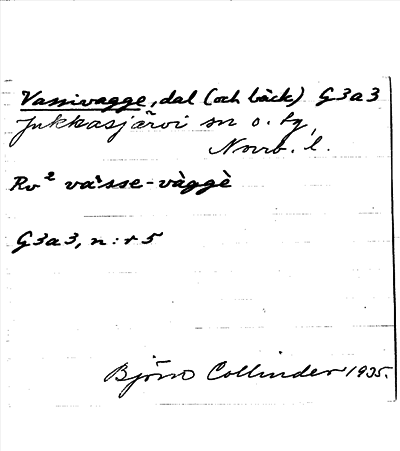 Vassivagge, dal (och bäck) G3a3
Jukkasjärvi sn o. tg,
Norrb. l.
Rv² va'sse-vàggè
G3a3, n:r 5
Björn Collinder 1935.